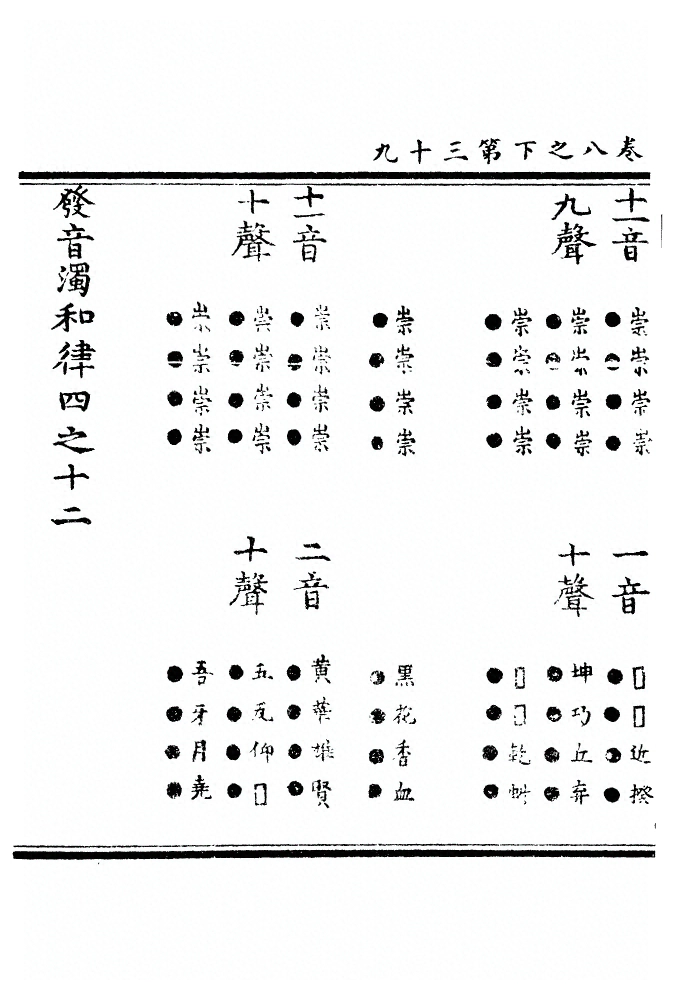 卷八之下第三十九
十一音
九聲
崇崇崇崇
●●●●
崇崇崇崇
●●●●
崇崇崇崇
●●●●
崇崇崇崇
●●●●
一音
十聲
□□近揆
●●●●
坤巧丘弃
●●●●
□□乾虯
●●●●
黑花香血
●●●●
十一音
十聲
崇崇崇崇
●●●●
崇崇崇崇
●●●●
崇崇崇崇
●●●●
二音
十聲
黄華雄賢
●●●●
五瓦仰□
●●●●
吾牙月堯
●●●●
發音濁和律四之十二